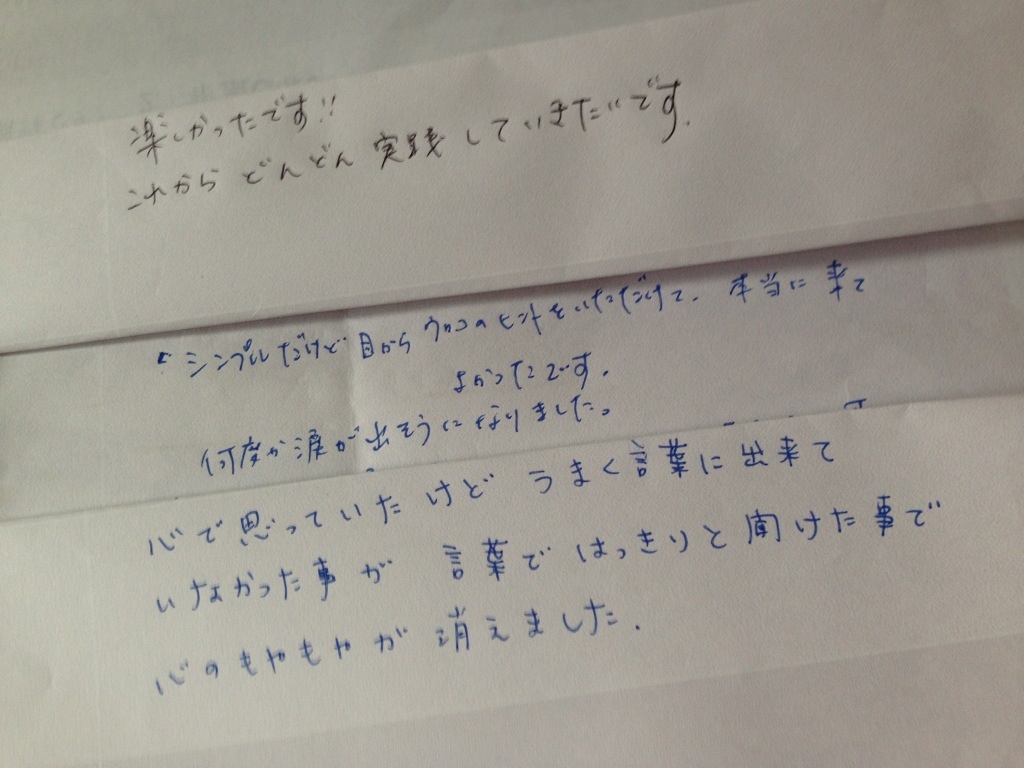 楽しかったです!!
これから どんどん 実践していきたいです.
シンプルだけど 目から ウロコのヒントをいただけて. 本当に 来て
よかったです.
何度か涙が出そうになりました。
心で思っていたけど うまく言葉に出来て
いなかった事が 言葉で はっきりと聞けた事で
心のもやもやが 消えました.